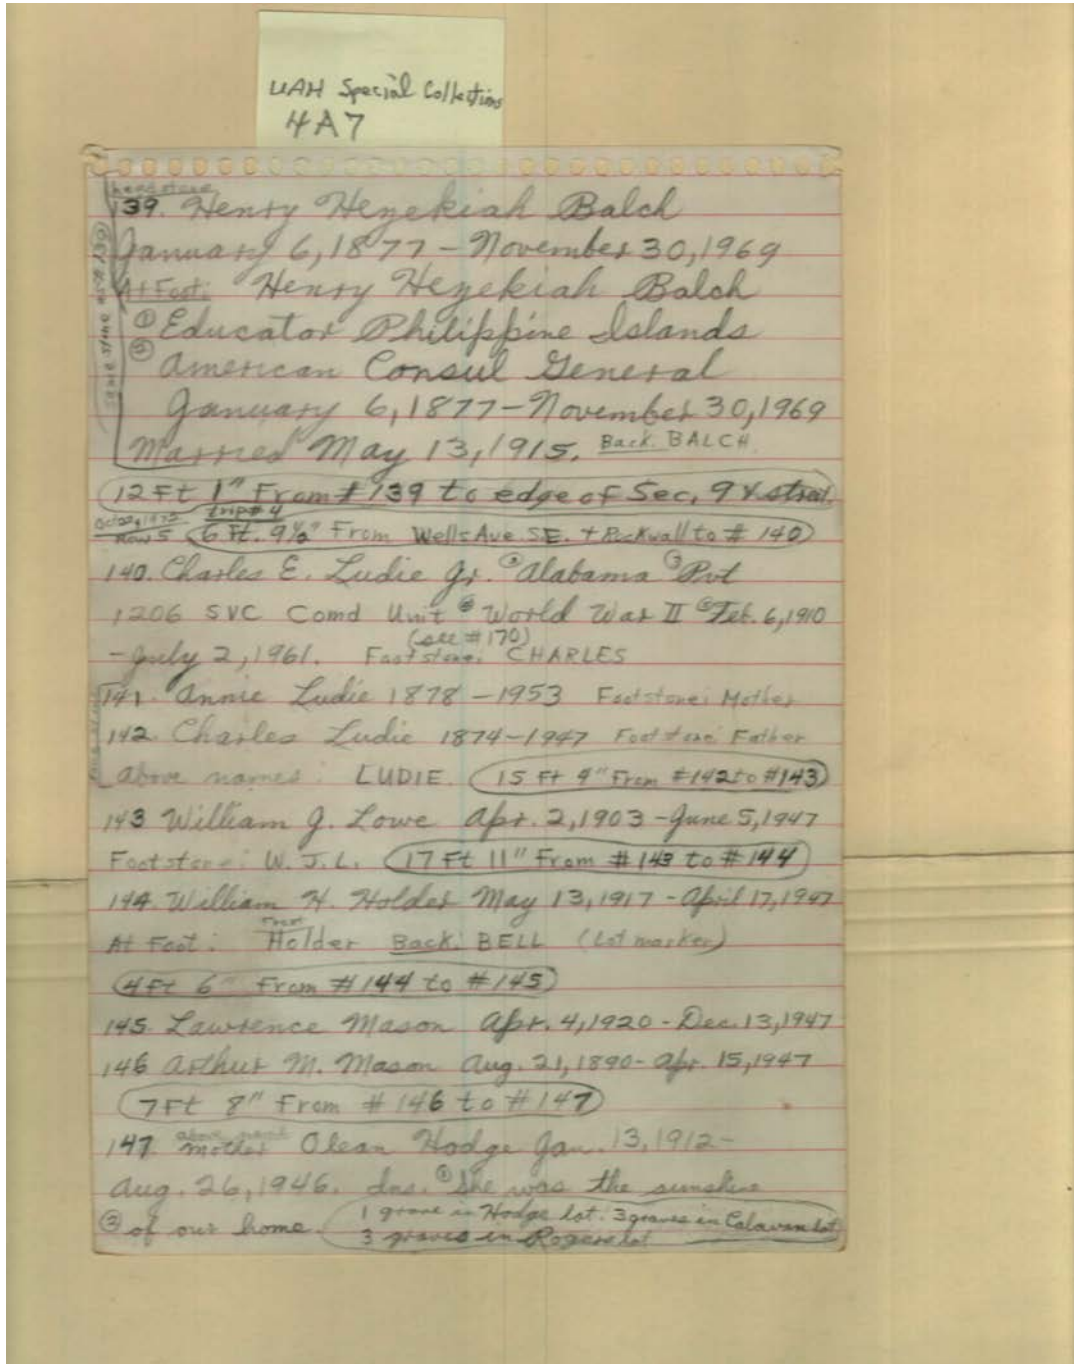 UAH Special Collections
4A7
headstone
139. Henry Hezekiah Balch
January 6, 1877 - November 30, 1969
same stone as # 139
At Foot: Henry Hezekiah Balch
① Educator Philippine Islands
② American Consul General
January 6, 1877 - November 30, 1969
Married May 13, 1915. Back: BALCH
12 Ft 1" From # 139 to edge of Sec. 9
Oct 1972 trip # 4
Row 5 6 Ft. 9½" From Wells Ave. S.E. + Rockwall to # 140
140. Charles E. Ludie Jr. ② Alabama ③ Pvt
1206 SVC Comd Unit ④ World War II ⑤ Feb. 6, 1910
(see # 170)
- July 2, 1961. Footstone: CHARLES
141. Annie Ludie 1878 - 1953 Footstone: Mother
142. Charles Ludie 1874 - 1947 Footstone: Father
above names: LUDIE. 15 Ft 4" From # 142 to # 143
143 William J. Lowe Apr. 2, 1903 - June 5, 1947
Footstone: W. J. L. 17 Ft 11" From # 143 to # 144
144. William H. Holder May 13, 1917 - April 17, 1947
At Foot: Front Holder Back: BELL (Lot marker)
4 Ft 6" From # 144 to # 145
145. Lawrence Mason Apr. 4, 1920 - Dec. 13, 1947
146 Arthur M. Mason Aug. 21, 1890 - Apr. 15, 1947
7 Ft 8" From # 146 to # 147
above name
147. Mother Olean Hodge Jan. 13, 1912 -
Aug. 26, 1946. Ins. ① She was the sunshine
② of our home. 1 grave in Hodge lot. 3 graves in Calavan lot
3 graves in Rogers lot